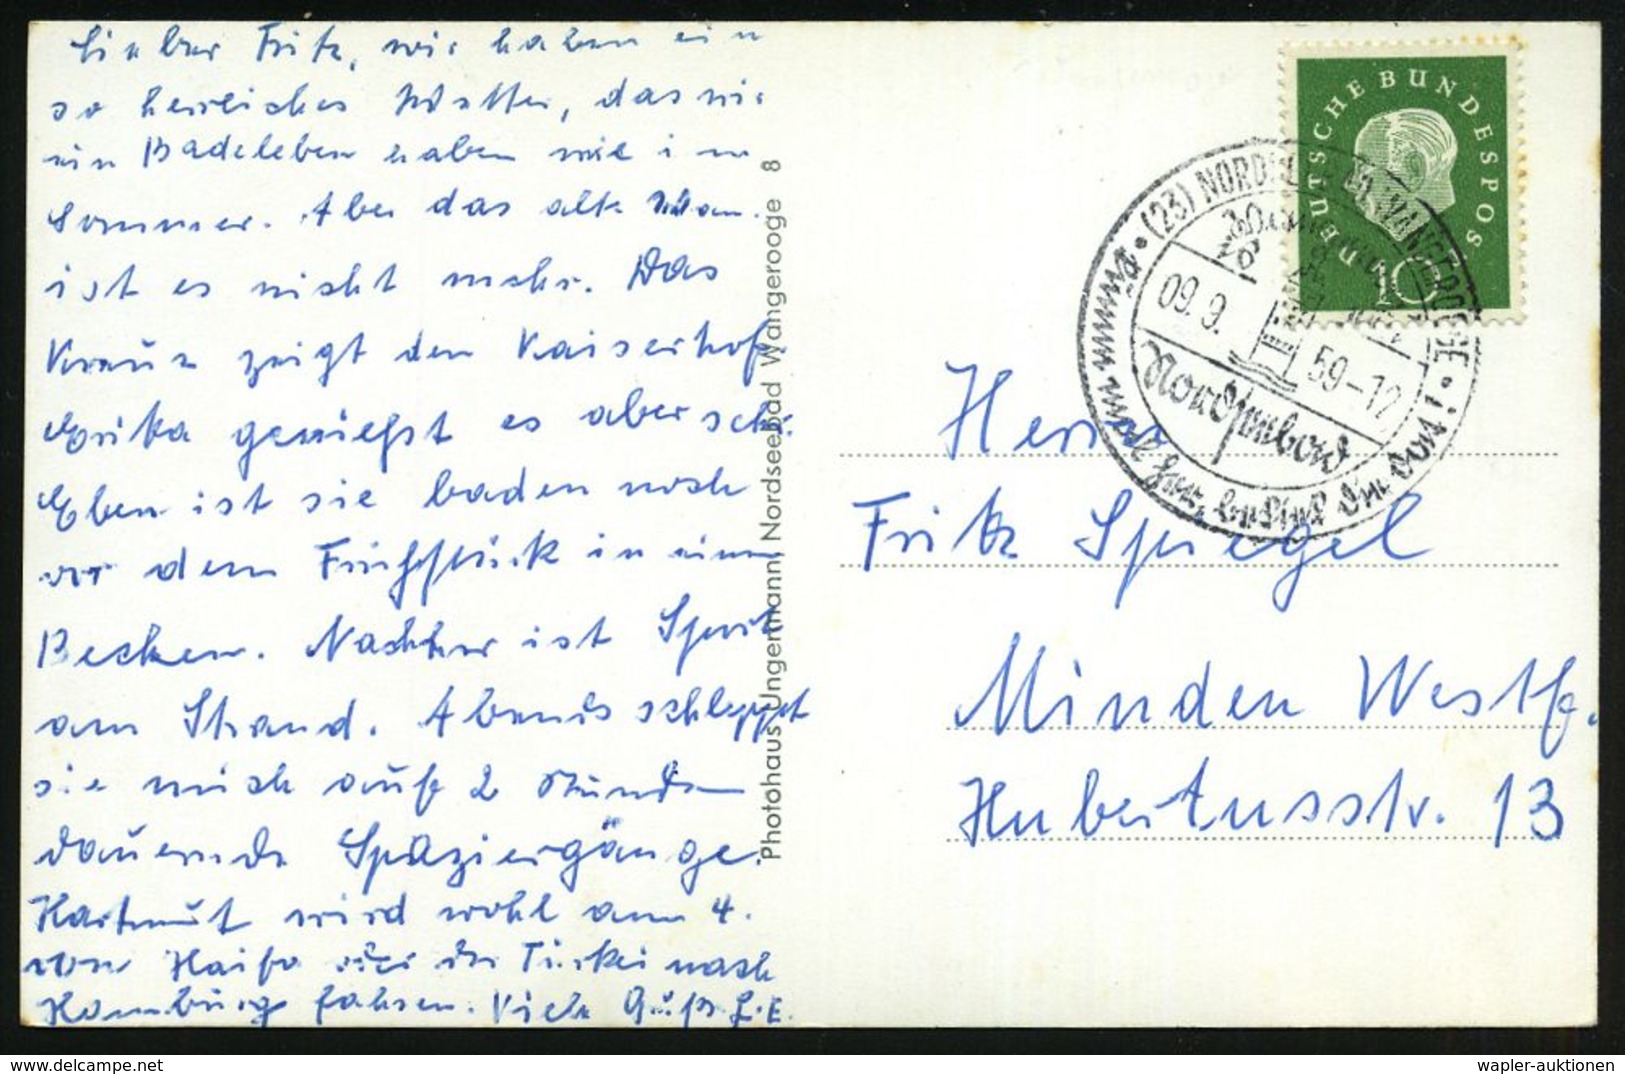 Lieber Fritz, wir haben ein
so herrliches Wetter, das wir
ein Badeleben haben wie im
Sommer. Aber das alte Wan.
ist es nicht mehr. Das
Kreuz zeigt den Kaiserhof.
Erika genießt es aber sehr.
Eben ist sie baden noch
vor dem Frühstück in einem
Becken. Nachher ist Sport
am Strand. Abends schleppt
sie mich auf 2 Stunden
dauernde Spaziergänge.
Hartmut wird wohl am 4.
von Haifa über die Türkei nach
Hamburg fahren. Viele Grüße
Photohaus Ungermann Nordseebad Wangerooge 8
DEUTSCHE BUNDESPOST
10
(23) NORDSEEBAD WANGEROOGE
09.9. 59-12
Herrn
Fritz Spiegel
Minden Westf.
Hubertusstr. 13
wapler-auktionen